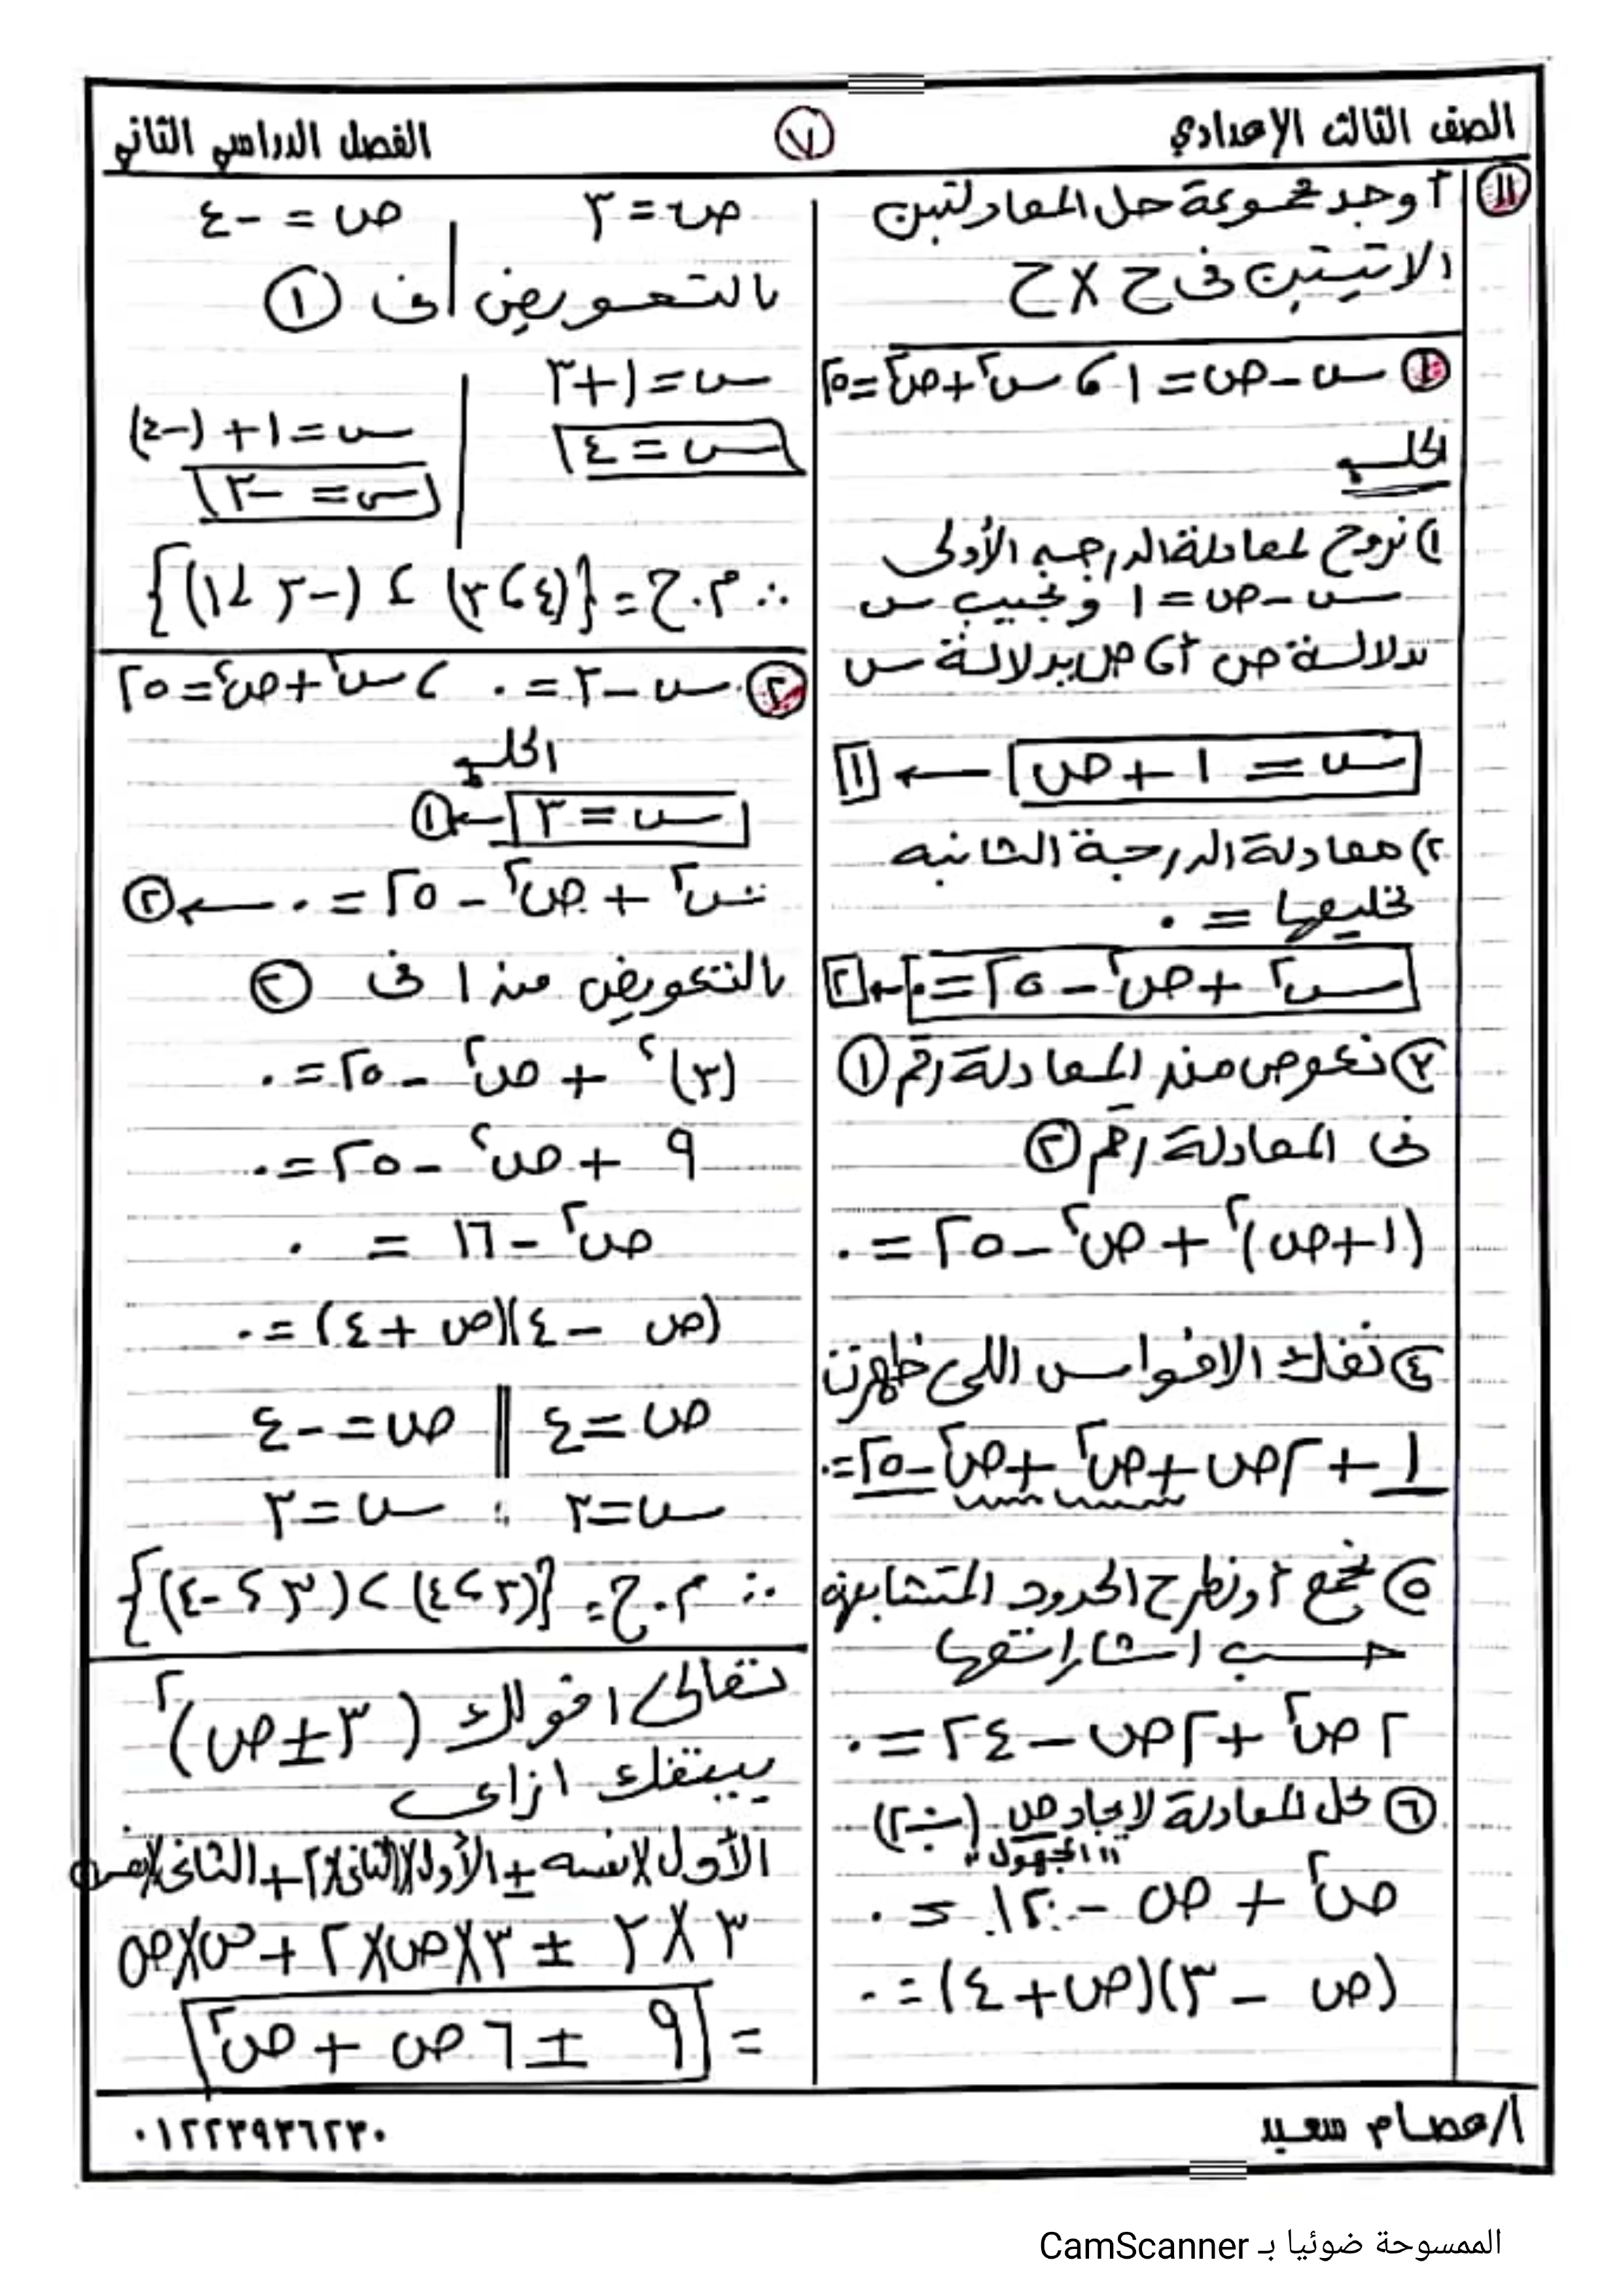 الصف الثالث الإعدادي
٧
الفصل الدراسي الثاني
١١ أوجد مجموعة حل المعادلتين
الاتيتين فى ح × ح
١ س - ص = ١ ، س٢ + ص٢ = ٢٥
الحل
١) نروح لمعادلة الدرجه الأولى
س - ص = ١ ونجيب س
بدلالة ص أ، ص بدلالة س
س = ١ + ص ← ١
٢) معادلة الدرجة الثانيه
نخليها = ٠
س٢ + ص٢ - ٢٥ = ٠ ← ٢
٣ نعوض من المعادلة رقم ١
فى المعادلة رقم ٢
(١+ص)٢ + ص٢ - ٢٥ = ٠
٤ نفك الاقواس اللى ظهرت
١ + ٢ص + ص٢ + ص٢ - ٢٥ = ٠
٥ نجمع أو نطرح الحدود المتشابهة
حسب اشاراتها
٢ص٢ + ٢ص - ٢٤ = ٠
٦ نحل المعادلة لايجاد ص (÷٢)
"المجهول"
ص٢ + ص - ١٢ = ٠
(ص - ٣)(ص + ٤) = ٠
ص = ٣ | ص = -٤
بالتعويض فى ١
س = ١ + ٣ | س = ١ + (-٤)
س = ٤ | س = -٣
∴ م.ح = {(٤ ، ٣) ، (-٣ ،
٢ س - ٣ = ٠ ، س٢ + ص٢ = ٢٥
الحل
س = ٣ ← ١
س٢ + ص٢ - ٢٥ = ٠ ← ٢
بالتعويض من ١ فى ٢
(٣)٢ + ص٢ - ٢٥ = ٠
٩ + ص٢ - ٢٥ = ٠
ص٢ - ١٦ = ٠
(ص - ٤)(ص + ٤) = ٠
ص = ٤ || ص = -٤
س = ٣ : س = ٣
∴ م.ح = {(٣ ، ٤) ، (٣ ، -٤)}
تعالى اقولك (٣ ± ص)٢
بيتفك ازاى
الأول × نفسه ± الأول × الثانى × ٢ + الثانى × نفسه
٣ × ٣ ± ٣ × ص × ٢ + ص × ص
= ٩ ± ٦ص + ص٢
أ/عصام سعيد
٠١٢٢٣٩٣٦٢٣٠
الممسوحة ضوئيا بـ CamScanner